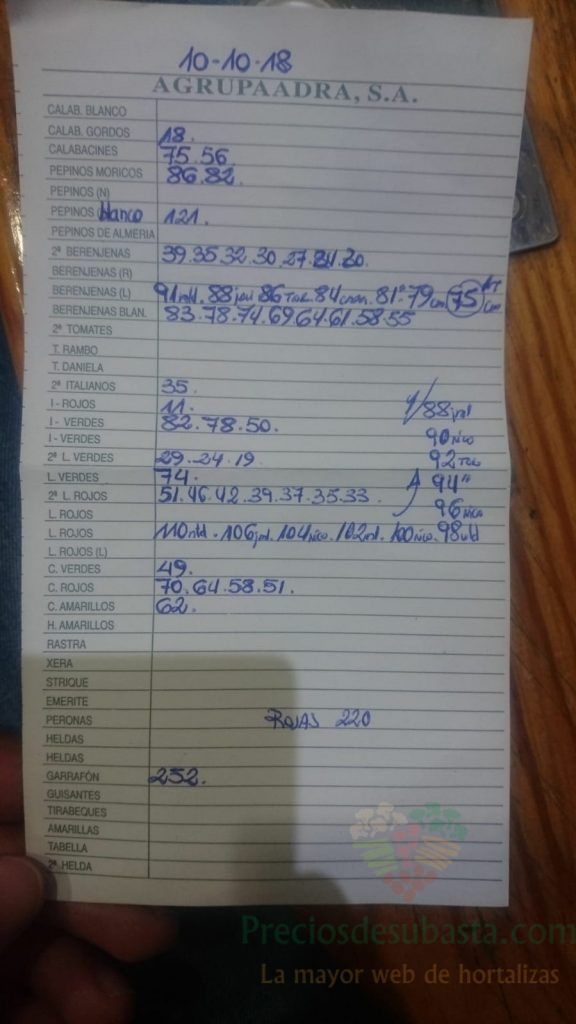 10-10-18
AGRUPAADRA, S.A.
CALAB. BLANCO
CALAB. GORDOS 18.
CALABACINES 75.56.
PEPINOS MORICOS 86.82.
PEPINOS (N)
PEPINOS blanco 121.
PEPINOS DE ALMERIA
2ª BERENJENAS 39.35.32.30.27.24.20.
BERENJENAS (R)
BERENJENAS (L) 91 . 88 . 86 . 84 . 81 . 79 75
BERENJENAS BLAN. 83.78.74.69.64.61.58.55
2ª TOMATES
T. RAMBO
T. DANIELA
2ª ITALIANOS 35.
I - ROJOS 11. 88
I - VERDES 82.78.50.
I - VERDES 90
2ª L. VERDES 29.24.19. 92
L. VERDES 74. 94
2ª L. ROJOS 51.46.42.39.37.35.33.
L. ROJOS 96
L. ROJOS 110 . 106 . 104 . 102 . 100 . 98
L. ROJOS (L)
C. VERDES 49.
C. ROJOS 70.64.58.51.
C. AMARILLOS 62.
H. AMARILLOS
RASTRA
XERA
STRIQUE
EMERITE
PERONAS ROJAS 220
HELDAS
HELDAS
GARRAFÓN 252.
GUISANTES
TIRABEQUES
AMARILLAS
TABELLA
2ª HELDA
Preciosdesubasta.com
La mayor web de hortalizas